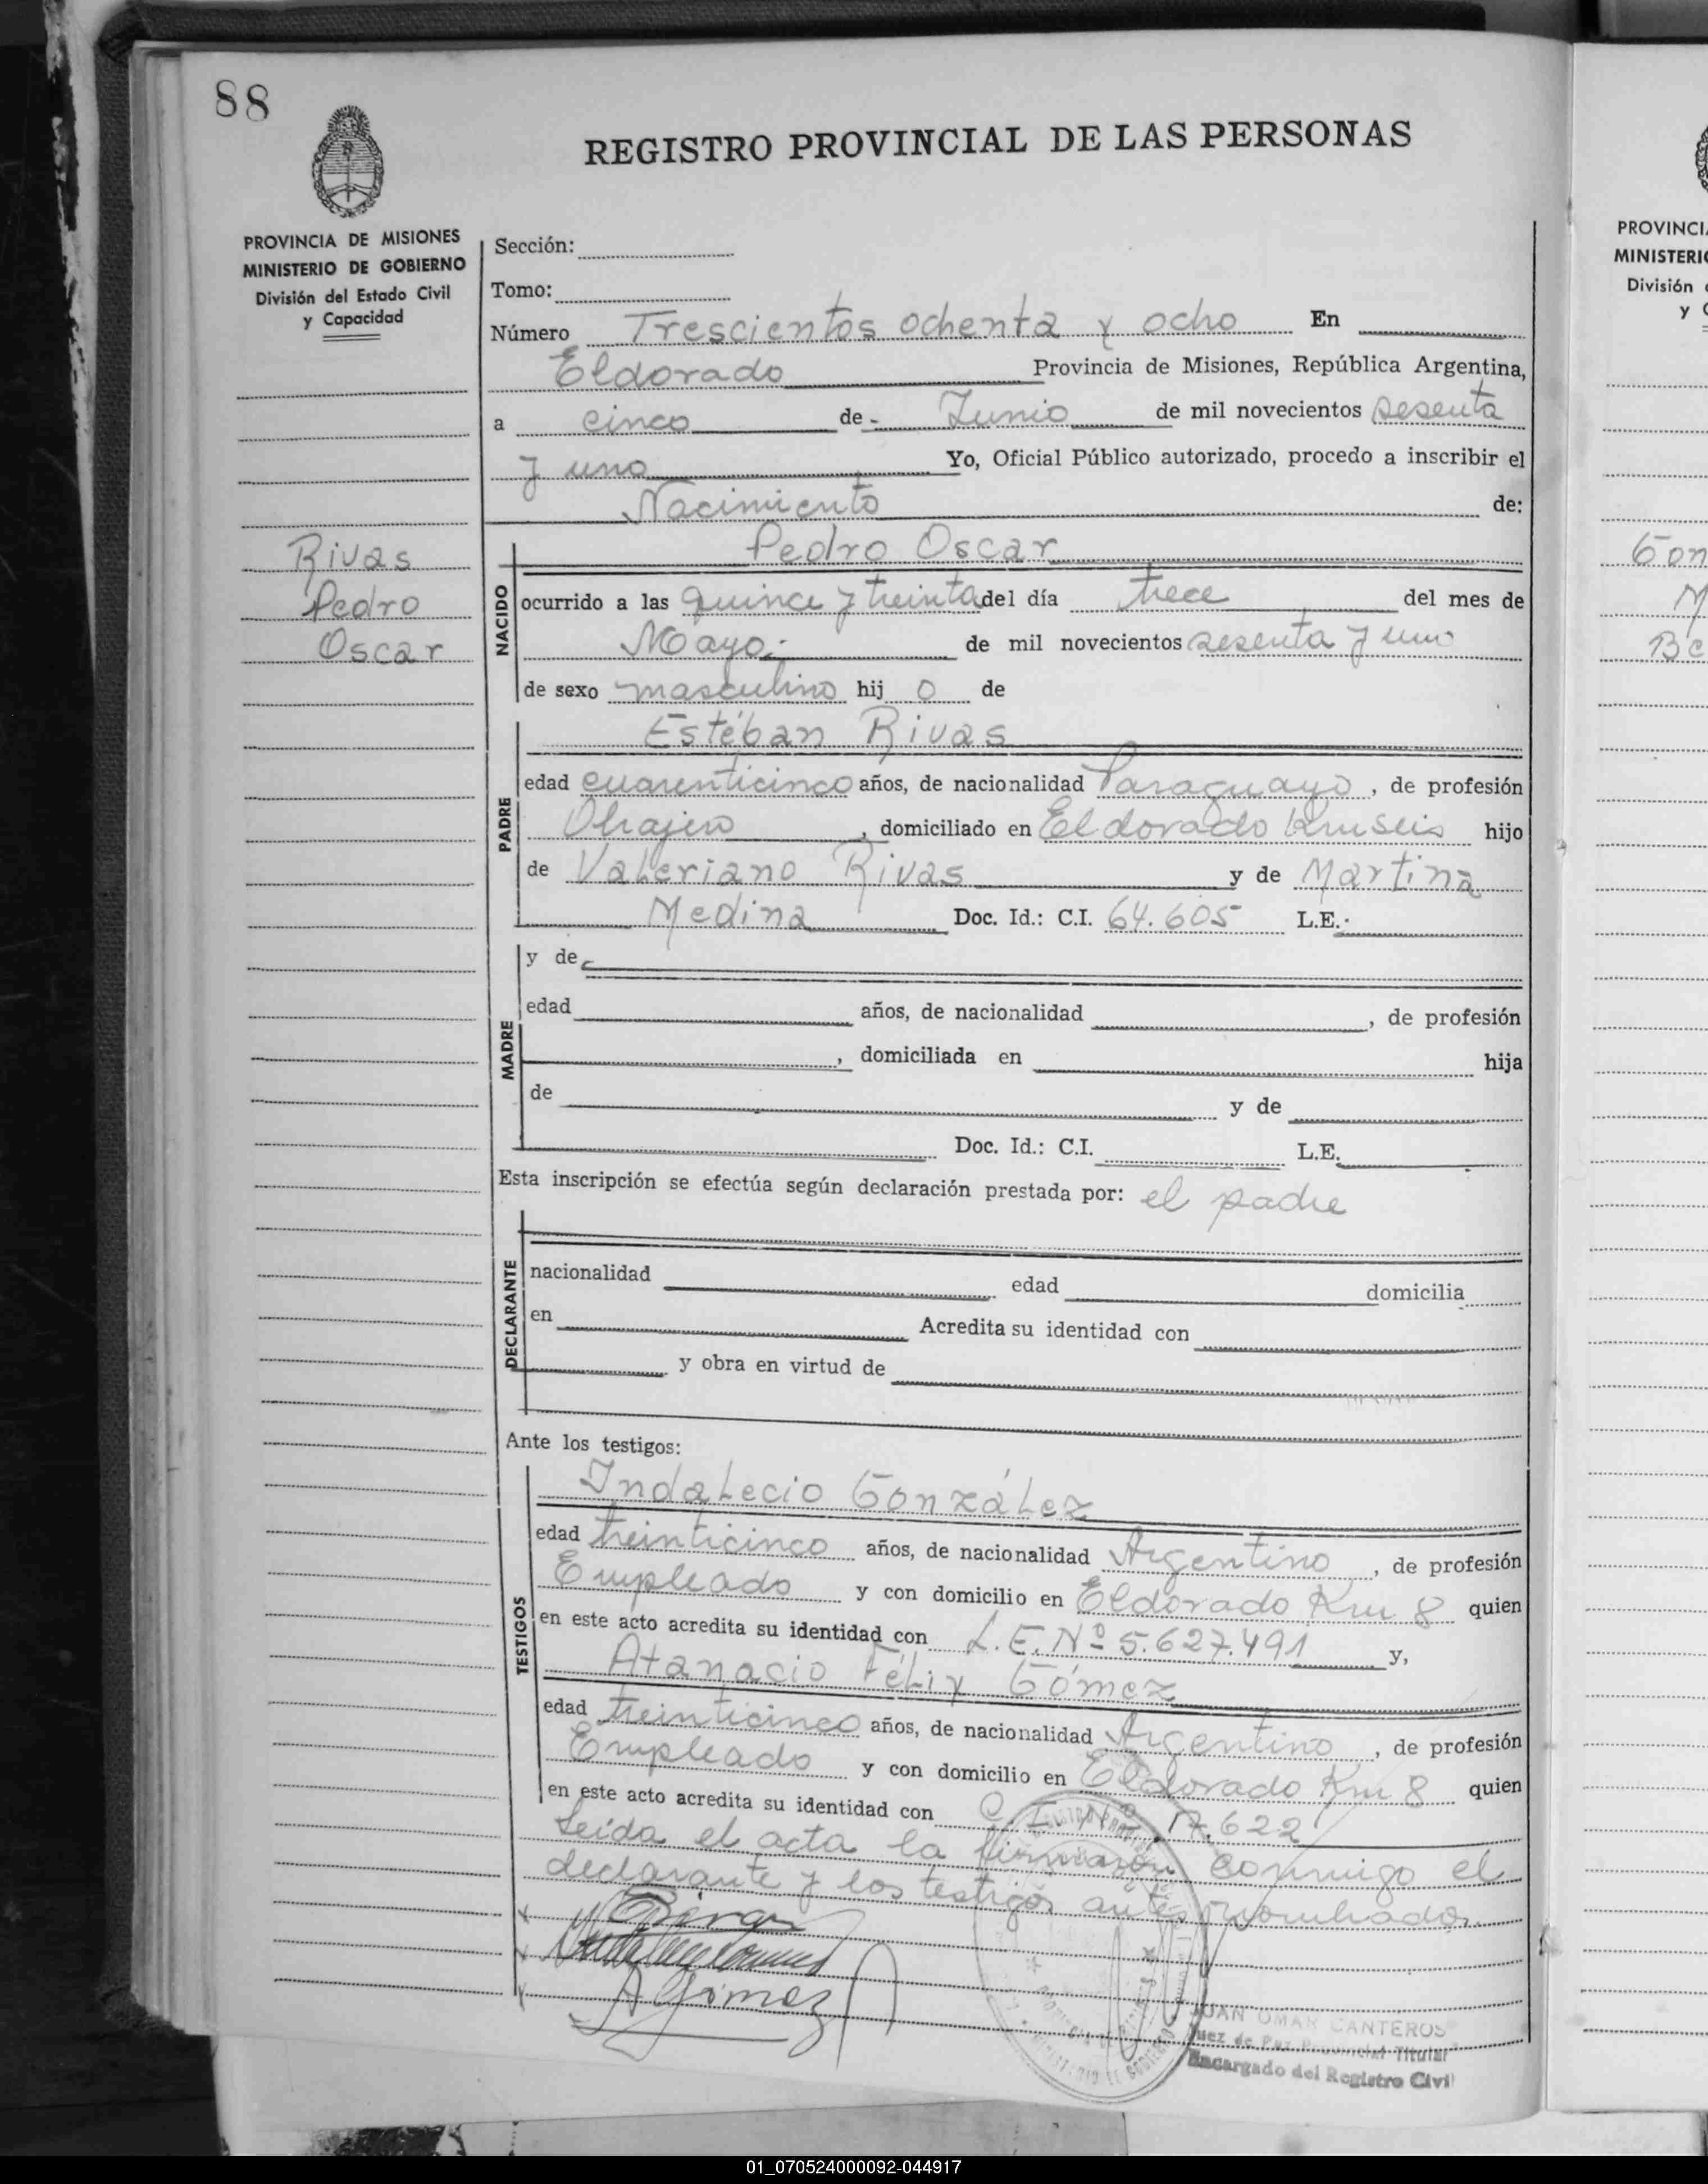 88
REGISTRO PROVINCIAL DE LAS PERSONAS
PROVINCIA DE MISIONES
MINISTERIO DE GOBIERNO
División del Estado Civil
y Capacidad
Rivas
Pedro
Oscar
Sección:
Tomo:
Número Trescientos ochenta y ocho En
Eldorado Provincia de Misiones, República Argentina,
a cinco de Junio de mil novecientos sesenta
y uno Yo, Oficial Público autorizado, procedo a inscribir el
Nacimiento de:
NACIDO
Pedro Oscar
ocurrido a las quince y treinta del día trece del mes de
Mayo de mil novecientos sesenta y uno
de sexo masculino hij o de
PADRE
Estéban Rivas
edad cuarenticinco años, de nacionalidad Paraguayo, de profesión
Obrajero, domiciliado en Eldorado Km seis hijo
de Valeriano Rivas y de Martina
Medina Doc. Id.: C.I. 64.605 L.E.
MADRE
y de
edad años, de nacionalidad , de profesión
, domiciliada en hija
de y de
Doc. Id.: C.I. L.E.
Esta inscripción se efectúa según declaración prestada por: el padre
DECLARANTE
nacionalidad edad domicilia
en Acredita su identidad con
y obra en virtud de
Ante los testigos:
TESTIGOS
Indalecio González
edad treinticinco años, de nacionalidad Argentino, de profesión
Empleado y con domicilio en Eldorado Km 8 quien
en este acto acredita su identidad con L.E. Nº 5.627.491 y,
Atanacio Félix Gómez
edad treinticinco años, de nacionalidad Argentino, de profesión
Empleado y con domicilio en Eldorado Km 8 quien
en este acto acredita su identidad con 17.622
Leida el acta la firmaron conmigo el
declarante y los testigos antes nombrados.
A Gómez
JUAN OMAR CANTEROS
Juez de Paz Provincial Titular
Encargado del Registro Civil
PROVINCI
MINISTERI
División
y
Gon
M
01_070524000092-044917